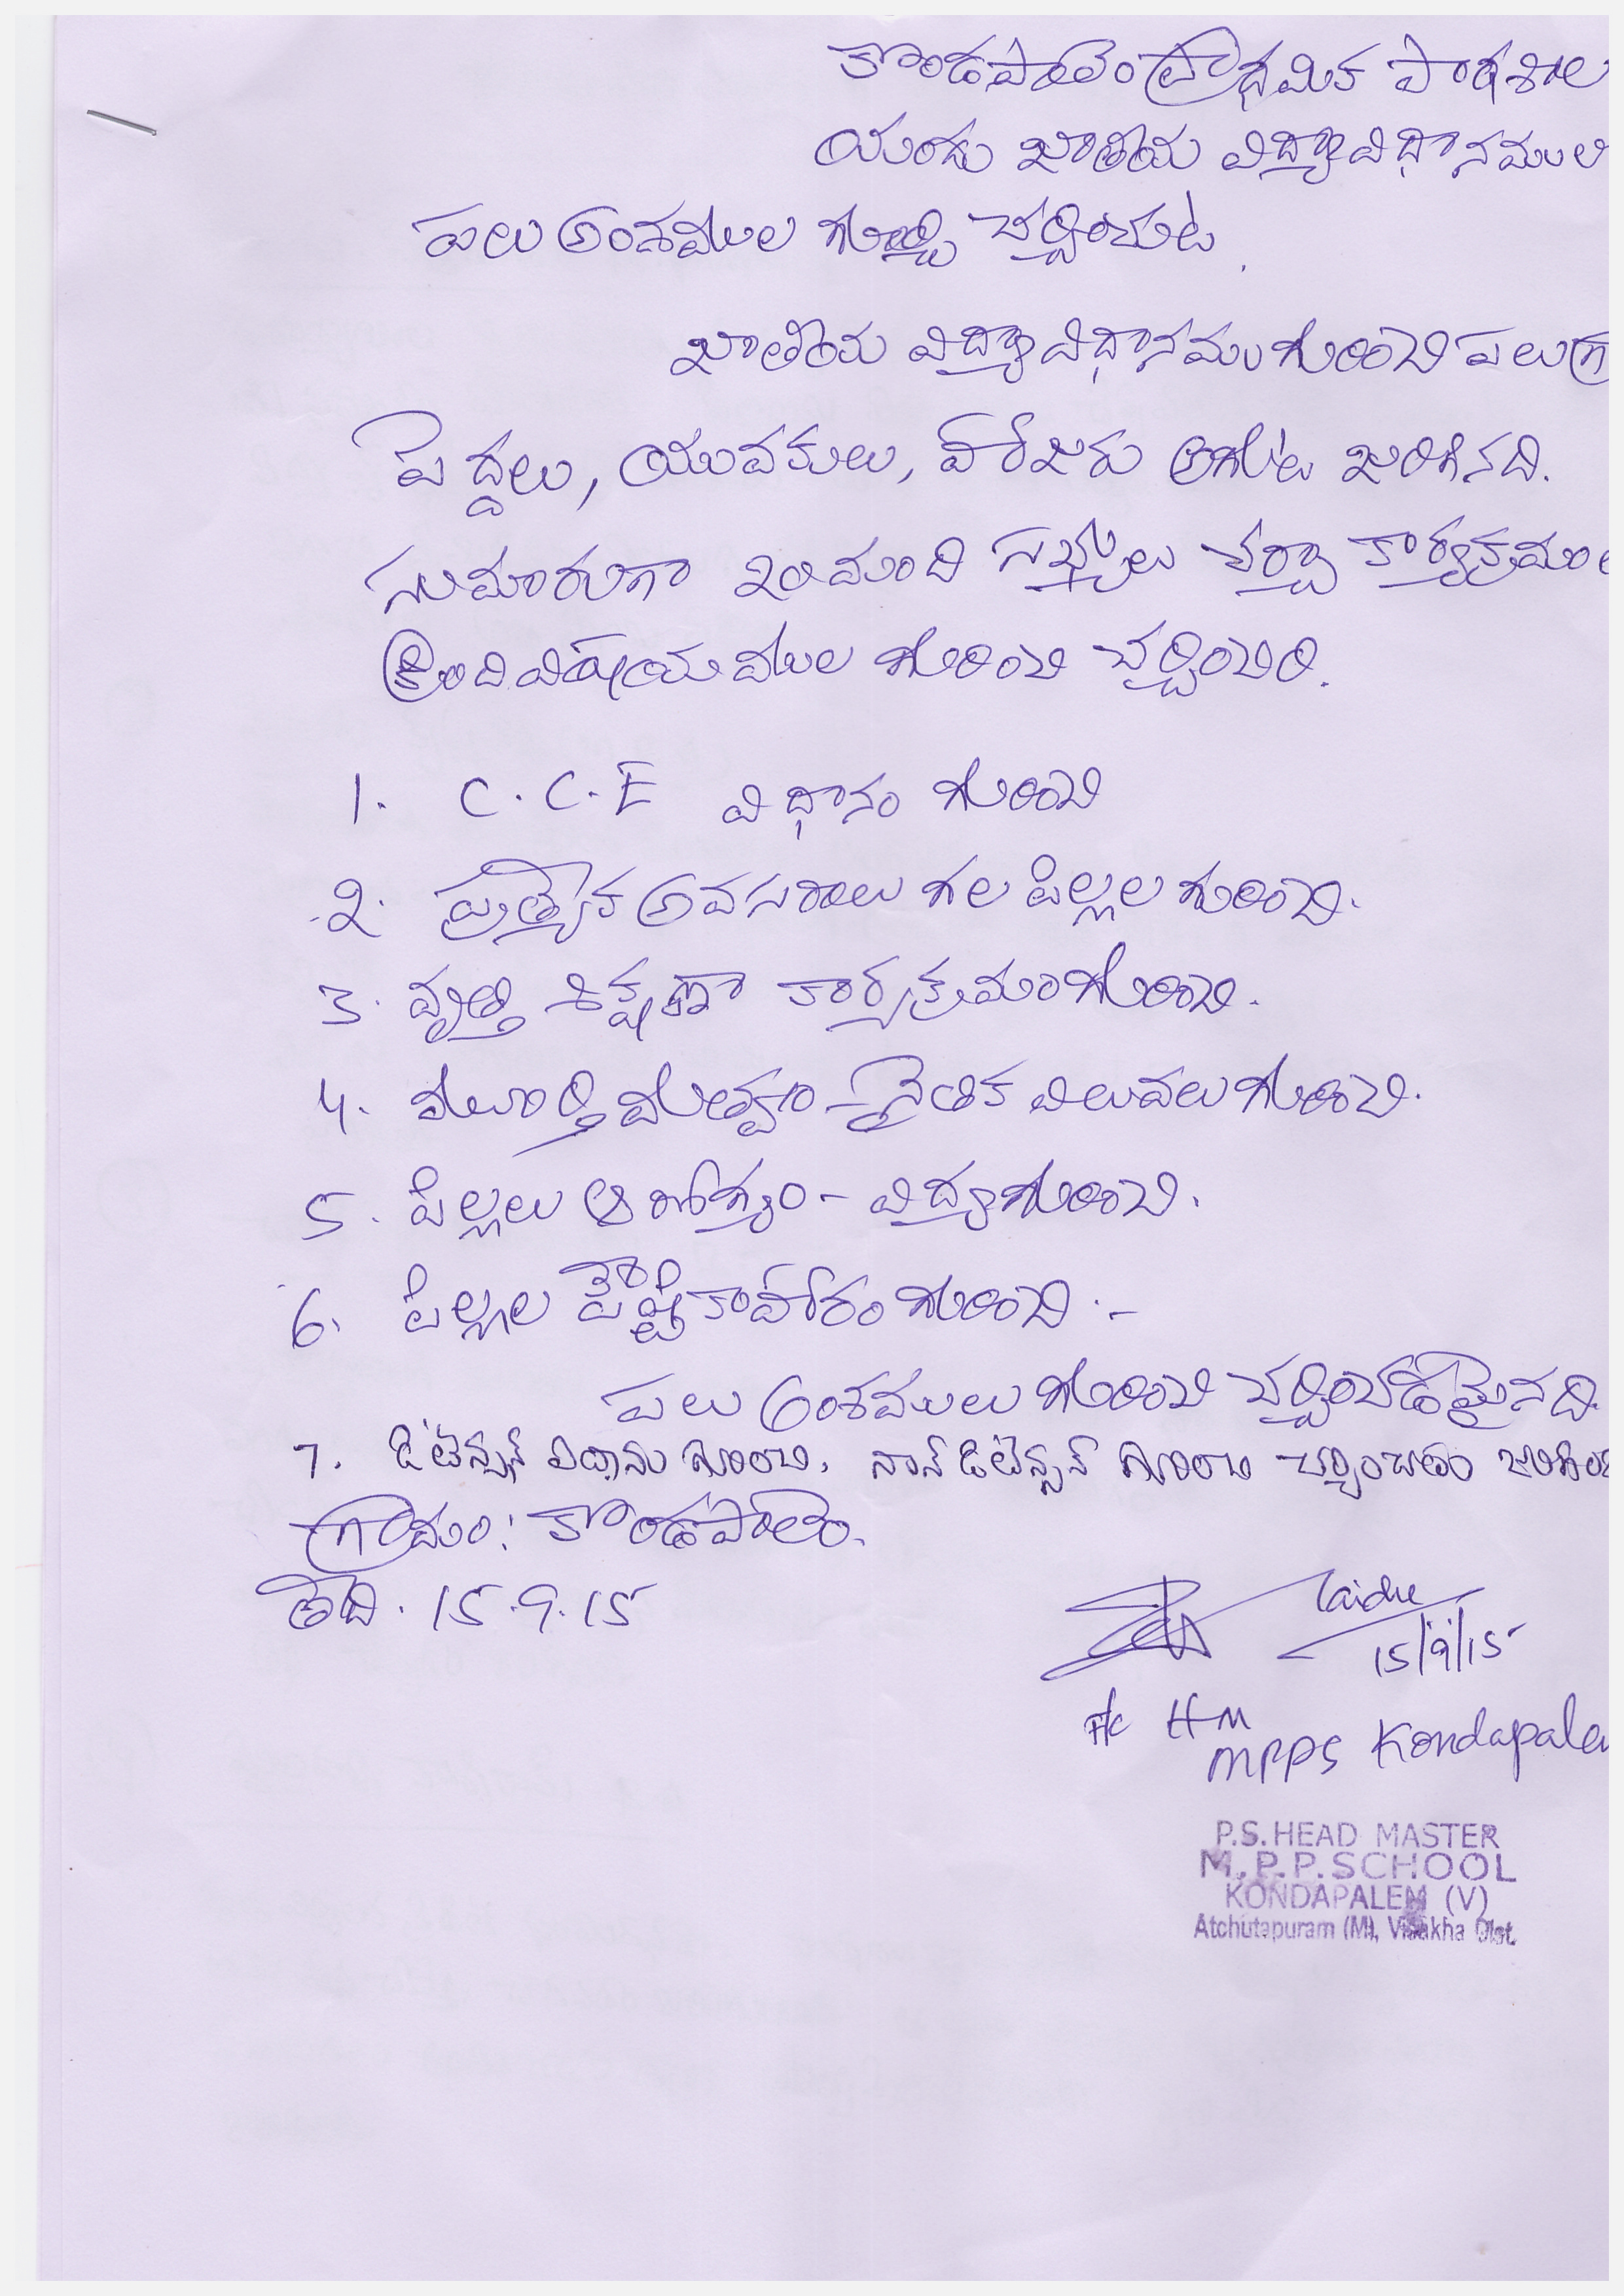 కొండపాలెం ప్రాథమిక పాఠశాల
యందు జాతీయ విద్యావిధానముల
పలు అంశముల గూర్చి చర్చించుట.
జాతీయ విద్యా విధానము గురించి పలు గ్రా
పెద్దలు, యువకులు, హాజరు అగుట జరిగినది.
సుమారుగా 20 మంది సభ్యులు చర్చా కార్యక్రమం
క్రింది విషయముల గురించి చర్చించిరి.
1. C.C.E విధానం గురించి
2. ప్రత్యేక అవసరాలు గల పిల్లల గురించి.
3. వృత్తి శిక్షణా కార్యక్రమం గురించి.
4. మూర్తిమత్వం - నైతిక విలువలు గురించి.
5. పిల్లలు ఆరోగ్యం - విద్య గురించి.
6. పిల్లల పౌష్టికాహారం గురించి. -
పలు అంశములు గురించి చర్చించడమైనది.
7. డిటెన్షన్ విధానం గురించి, నాన్ డిటెన్షన్ గురించి చర్చించడం జరిగింది
గ్రామం: కొండపాలెం.
తేది. 15.9.15
15/9/15
F/c HM
MPPS Kondapalem
P.S. HEAD MASTER
M.P.P. SCHOOL
KONDAPALEM (V)
Atchutapuram (M), Visakha Dist.